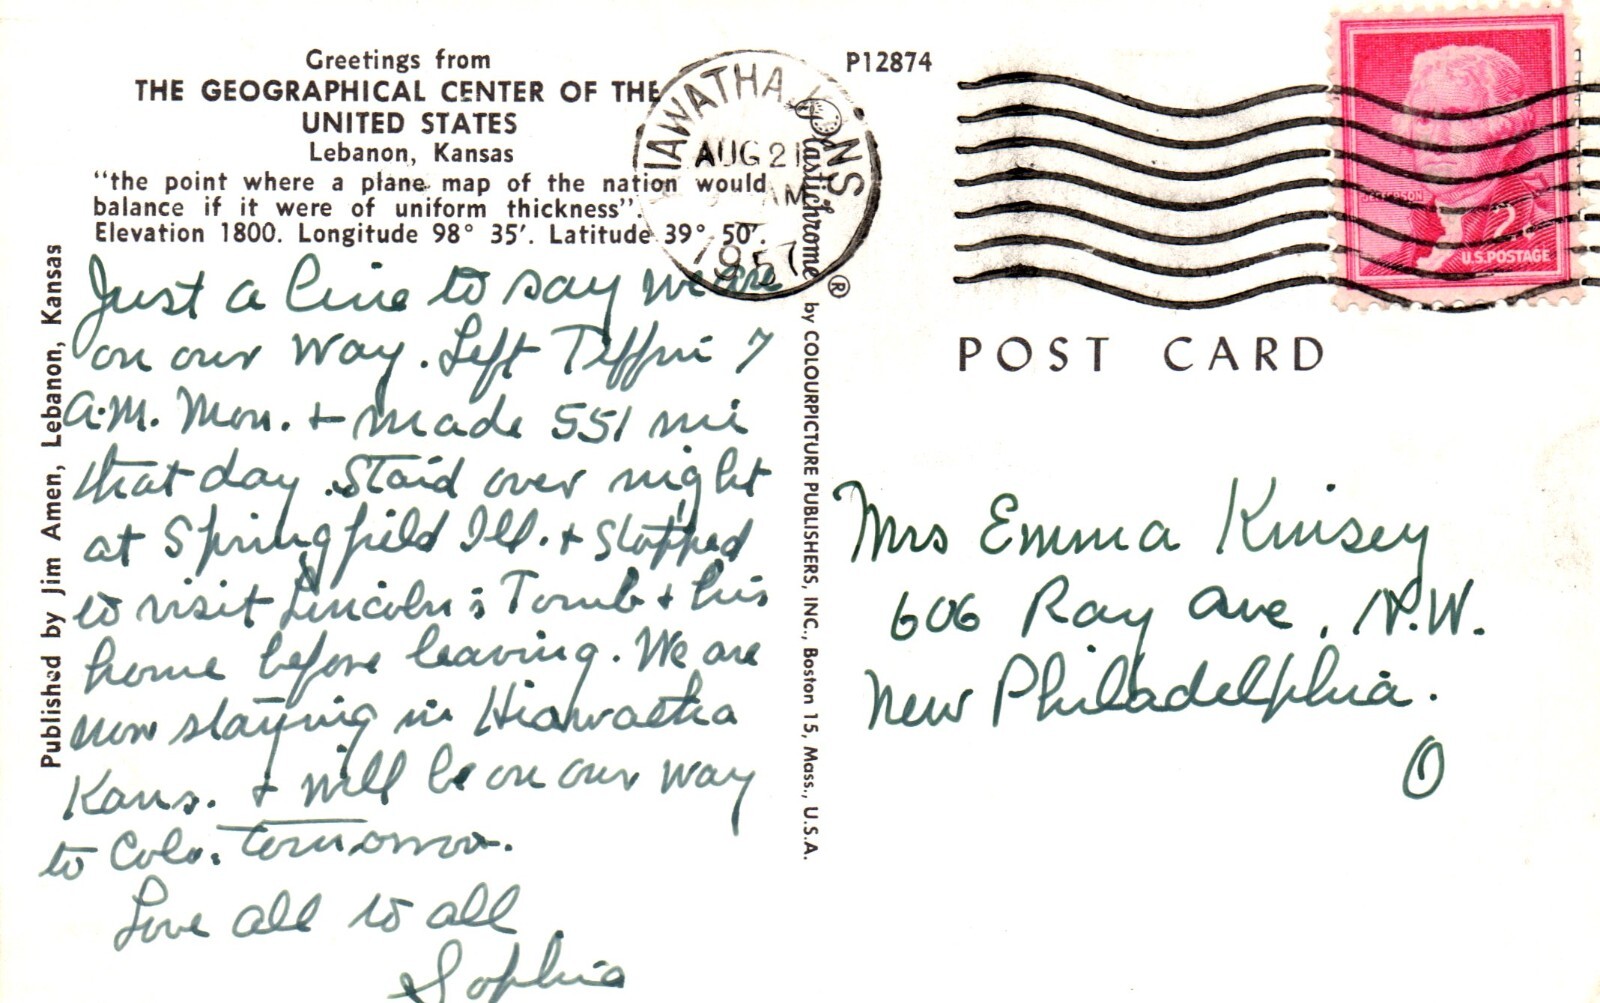 Greetings from
THE GEOGRAPHICAL CENTER OF THE
UNITED STATES
Lebanon, Kansas
"the point where a plane map of the nation would
balance if it were of uniform thickness".
Elevation 1800. Longitude 98° 35′. Latitude 39° 50′.
Just a line to say we are
on our way. Left Tiffin 7
A.M. Mon. + made 551 mi
that day. Staid over night
at Springfield Ill. + stopped
to visit Lincoln's Tomb + his
home before leaving. We are
now staying in Hiawatha
Kans. + will be on our way
to Colo. tomorrow.
Love all to all
Sophia
Published by Jim Amen, Lebanon, Kansas
HIAWATHA KANS
AUG 21
AM
1957
Plastichrome ® by COLOURPICTURE PUBLISHERS, INC., Boston 15, Mass., U.S.A.
P12874
JEFFERSON
2¢
U.S. POSTAGE
POST CARD
Mrs Emma Kinsey
606 Ray Ave, N.W.
New Philadelphia.
O